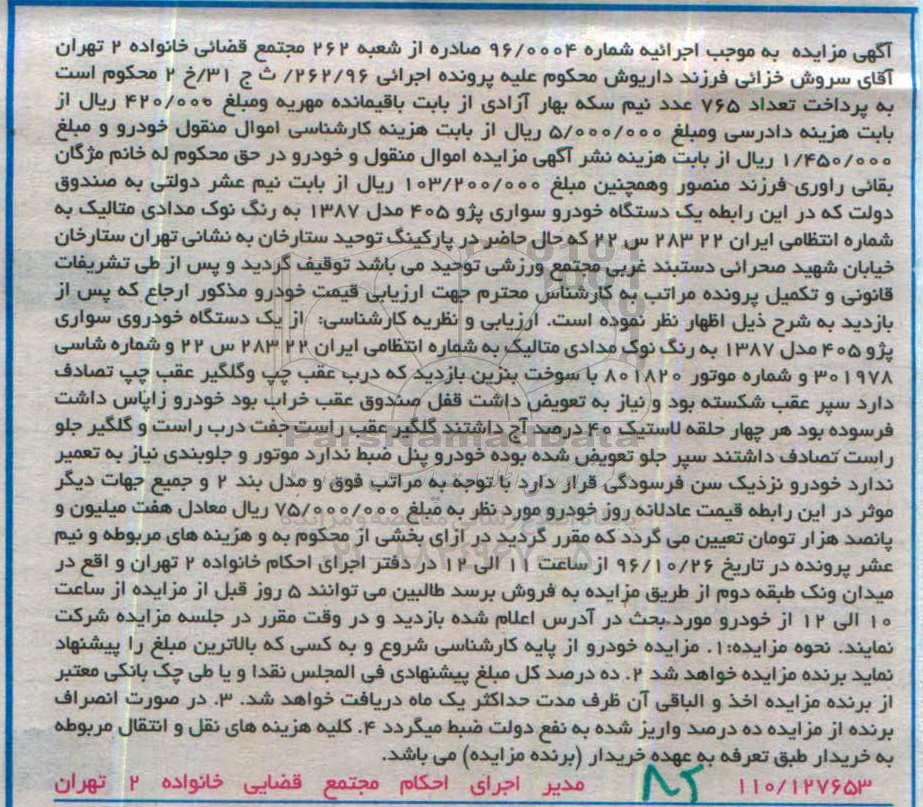 آگهی مزایده به موجب اجرائیه شماره ۹۶/۰۰۰۴ صادره از شعبه ۲۶۲ مجتمع قضائی خانواده ۲ تهران
آقای سروش خزائی فرزند داریوش محکوم علیه پرونده اجرائی ۲۶۲/۹۶/ ث ج ۳۱/خ ۲ محکوم است
به پرداخت تعداد ۷۶۵ عدد نیم سکه بهار آزادی از بابت باقیمانده مهریه ومبلغ ۴۲۰/۰۰۰ ریال از
بابت هزینه دادرسی ومبلغ ۵/۰۰۰/۰۰۰ ریال از بابت هزینه کارشناسی اموال منقول خودرو و مبلغ
۱/۴۵۰/۰۰۰ ریال از بابت هزینه نشر آگهی مزایده اموال منقول و خودرو در حق محکوم له خانم مژگان
بقائی راوری فرزند منصور وهمچنین مبلغ ۱۰۳/۲۰۰/۰۰۰ ریال از بابت نیم عشر دولتی به صندوق
دولت که در این رابطه یک دستگاه خودرو سواری پژو ۴۰۵ مدل ۱۳۸۷ به رنگ نوک مدادی متالیک به
شماره انتظامی ایران ۲۲ ۲۸۳ س ۲۲ که حال حاضر در پارکینگ توحید ستارخان به نشانی تهران ستارخان
خیابان شهید صحرائی دستبند غربی مجتمع ورزشی توحید می باشد توقیف گردید و پس از طی تشریفات
قانونی و تکمیل پرونده مراتب به کارشناس محترم جهت ارزیابی قیمت خودرو مذکور ارجاع که پس از
بازدید به شرح ذیل اظهار نظر نموده است. ارزیابی و نظریه کارشناسی: از یک دستگاه خودروی سواری
پژو ۴۰۵ مدل ۱۳۸۷ به رنگ نوک مدادی متالیک به شماره انتظامی ایران ۲۲ ۲۸۳ س ۲۲ و شماره شاسی
۳۰۱۹۷۸ و شماره موتور ۸۰۱۸۲۰ با سوخت بنزین بازدید که درب عقب چپ وگلگیر عقب چپ تصادف
دارد سپر عقب شکسته بود و نیاز به تعویض داشت قفل صندوق عقب خراب بود خودرو زاپاس داشت
فرسوده بود هر چهار حلقه لاستیک ۴۰ درصد آج داشتند گلگیر عقب راست جفت درب راست و گلگیر جلو
راست تصادف داشتند سپر جلو تعویض شده بوده خودرو پنل ضبط ندارد موتور و جلوبندی نیاز به تعمیر
ندارد خودرو نزدیک سن فرسودگی قرار دارد با توجه به مراتب فوق و مدل بند ۲ و جمیع جهات دیگر
موثر در این رابطه قیمت عادلانه روز خودرو مورد نظر به مبلغ ۷۵/۰۰۰/۰۰۰ ریال معادل هفت میلیون و
پانصد هزار تومان تعیین می گردد که مقرر گردید در ازای بخشی از محکوم به و هزینه های مربوطه و نیم
عشر پرونده در تاریخ ۹۶/۱۰/۲۶ از ساعت ۱۱ الی ۱۲ در دفتر اجرای احکام خانواده ۲ تهران و اقع در
میدان ونک طبقه دوم از طریق مزایده به فروش برسد طالبین می توانند ۵ روز قبل از مزایده از ساعت
۱۰ الی ۱۲ از خودرو مورد بحث در آدرس اعلام شده بازدید و در وقت مقرر در جلسه مزایده شرکت
نمایند. نحوه مزایده:۱. مزایده خودرو از پایه کارشناسی شروع و به کسی که بالاترین مبلغ را پیشنهاد
نماید برنده مزایده خواهد شد ۲. ده درصد کل مبلغ پیشنهادی فی المجلس نقدا و یا طی چک بانکی معتبر
از برنده مزایده اخذ و الباقی آن ظرف مدت حداکثر یک ماه دریافت خواهد شد. ۳. در صورت انصراف
برنده از مزایده ده درصد واریز شده به نفع دولت ضبط میگردد ۴. کلیه هزینه های نقل و انتقال مربوطه
به خریدار طبق تعرفه به عهده خریدار (برنده مزایده) می باشد.
۱۱۰/۱۲۷۶۵۳ مدیر اجرای احکام مجتمع قضایی خانواده ۲ تهران
ParsNamadData